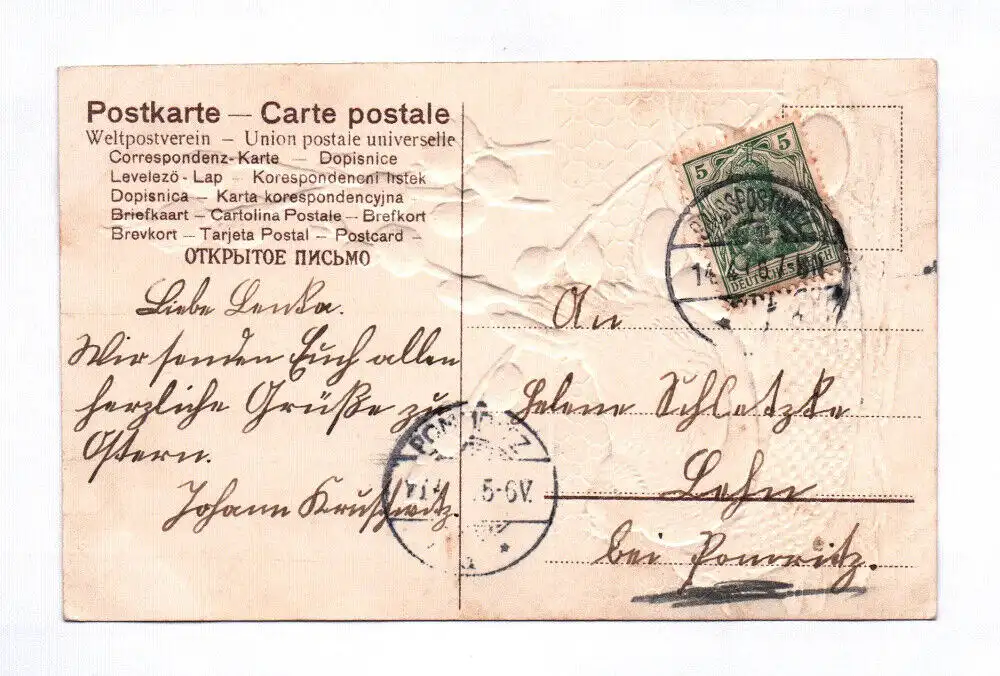 Postkarte — Carte postale
Weltpostverein – Union postale universelle
Correspondenz-Karte — Dopisnice
Levelező-Lap — Korespondencni listek
Dopisnica — Karta korespondencyjna
Briefkaart — Cartolina Postale — Brefkort
Brevkort — Tarjeta Postal — Postcard —
ОТКРЫТОЕ ПИСЬМО
Liebe Lenka.
Wir senden Euch allen
herzliche Grüße zu
Ostern.
Johann Kruschwitz.
5 5
DEUTSCHES REICH
14.4.
5-6V.
An
Helene Schletzke
Lehn
bei Pommritz.